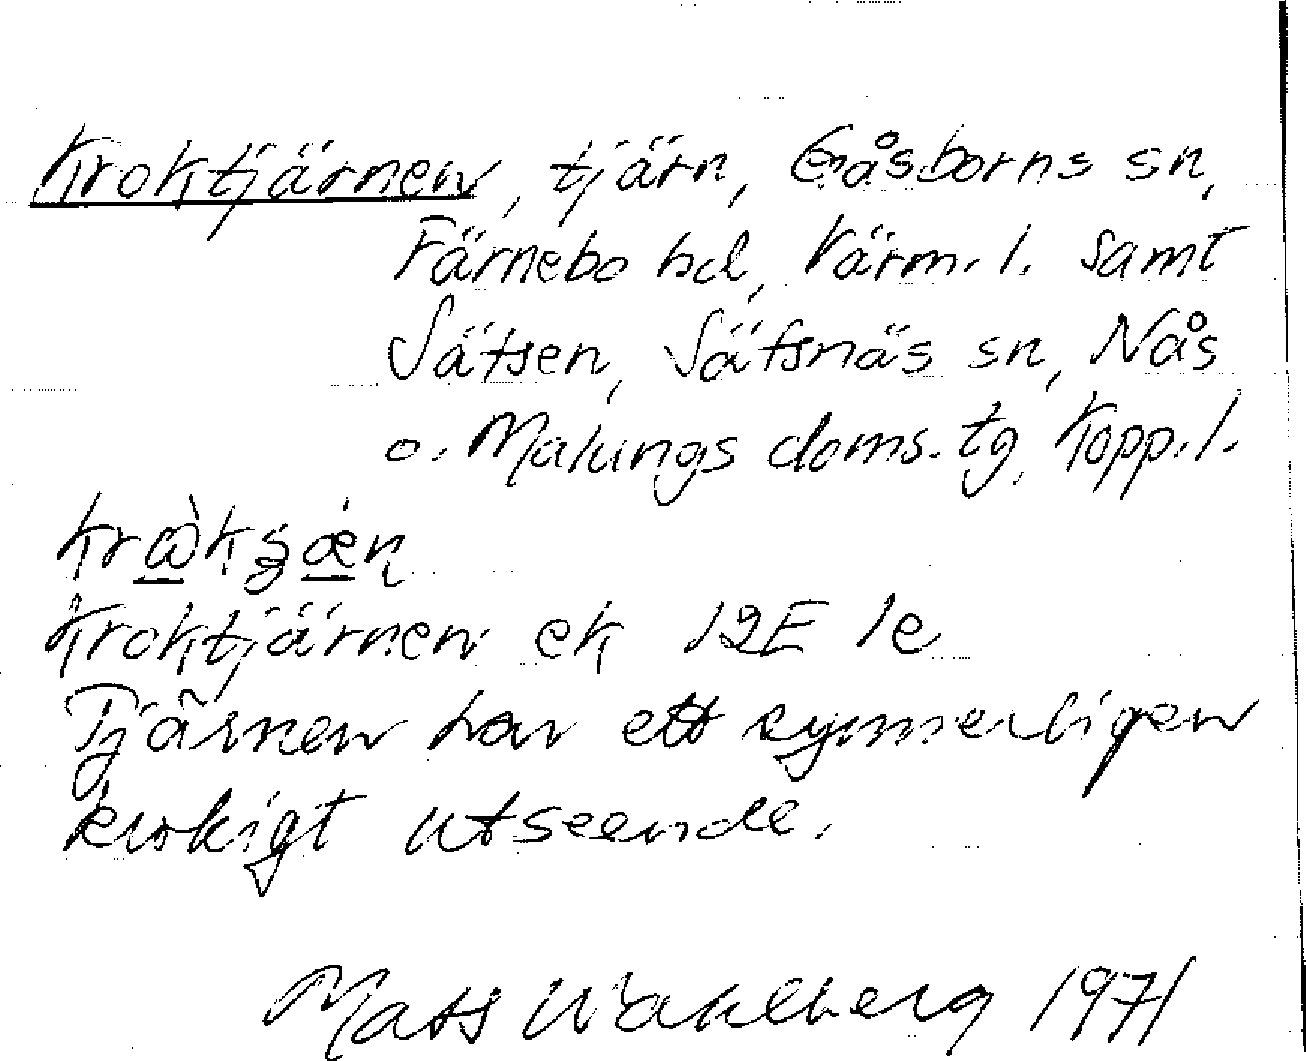 Kroktjärnen, tjärn, Gåsborns sn,
Färnebo hd, Värm. l. samt
Sätsen, Säfsnäs sn, Nås
o. Malungs doms. tg, Kopp. l.
Kroktjärnen ek 12E 1e
Tjärnen har ett synnerligen
krokigt utseende.
Mats Wahlberg 1971